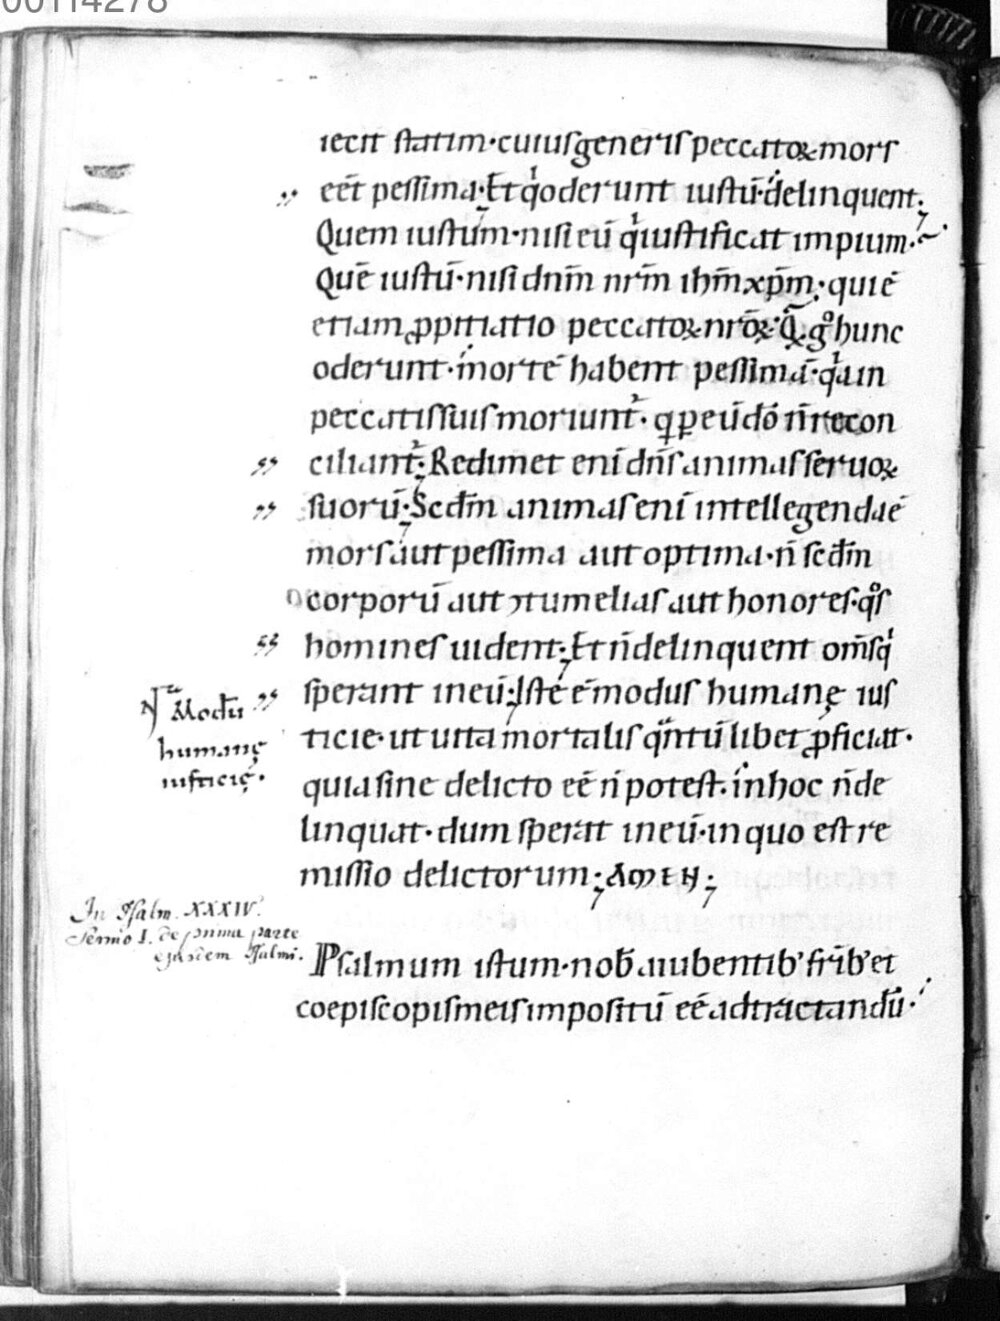 00114278
iecit statim·cuius generis peccatoꝝ mors
eēt pessima; Et qͥ oderunt iustū·delinquent;
Quem iustum·nisi eū qͥ iustificat impium·
Quē iustū·nisi dnm̄ nrm̄ ihm̄ xpm̄·qui ē
etiam ꝓpitiatio peccatoꝝ nr̄oꝝ· hunc
oderunt·morte habent pessimā·qͥa in
peccatis suis moriunt᷑· q̇ p eū dō n̄ recon
ciliant᷑; Redimet enī dn̄s animas seruoꝝ
suorū; Scd̄m animas enī intellegenda ē
mors aut pessima aut optima·n̄ scd̄m
corporū aut ꝯtumelias aut honores·qͦs
homines uident; Et n̄ delinquent om̄s qͥ
sperant in eū; Iste ē modus humanę ius
ticie·ut uita mortalis qͣntū libet ꝓficiat·
quia sine delicto eē n̄ potest·in hoc n̄ de
linquat·dum sperat in eū·in quo est re
missio delictorum; AMEN;
Modū
humanę
iusticię·
In Psalm. XXXIV.
Sermo I. de prima parte
ejusdem Psalmi.
Psalmum istum·nob̄ a iubentib' fr̄ib' et
coepiscopis meis impositū eē ad tractandū·